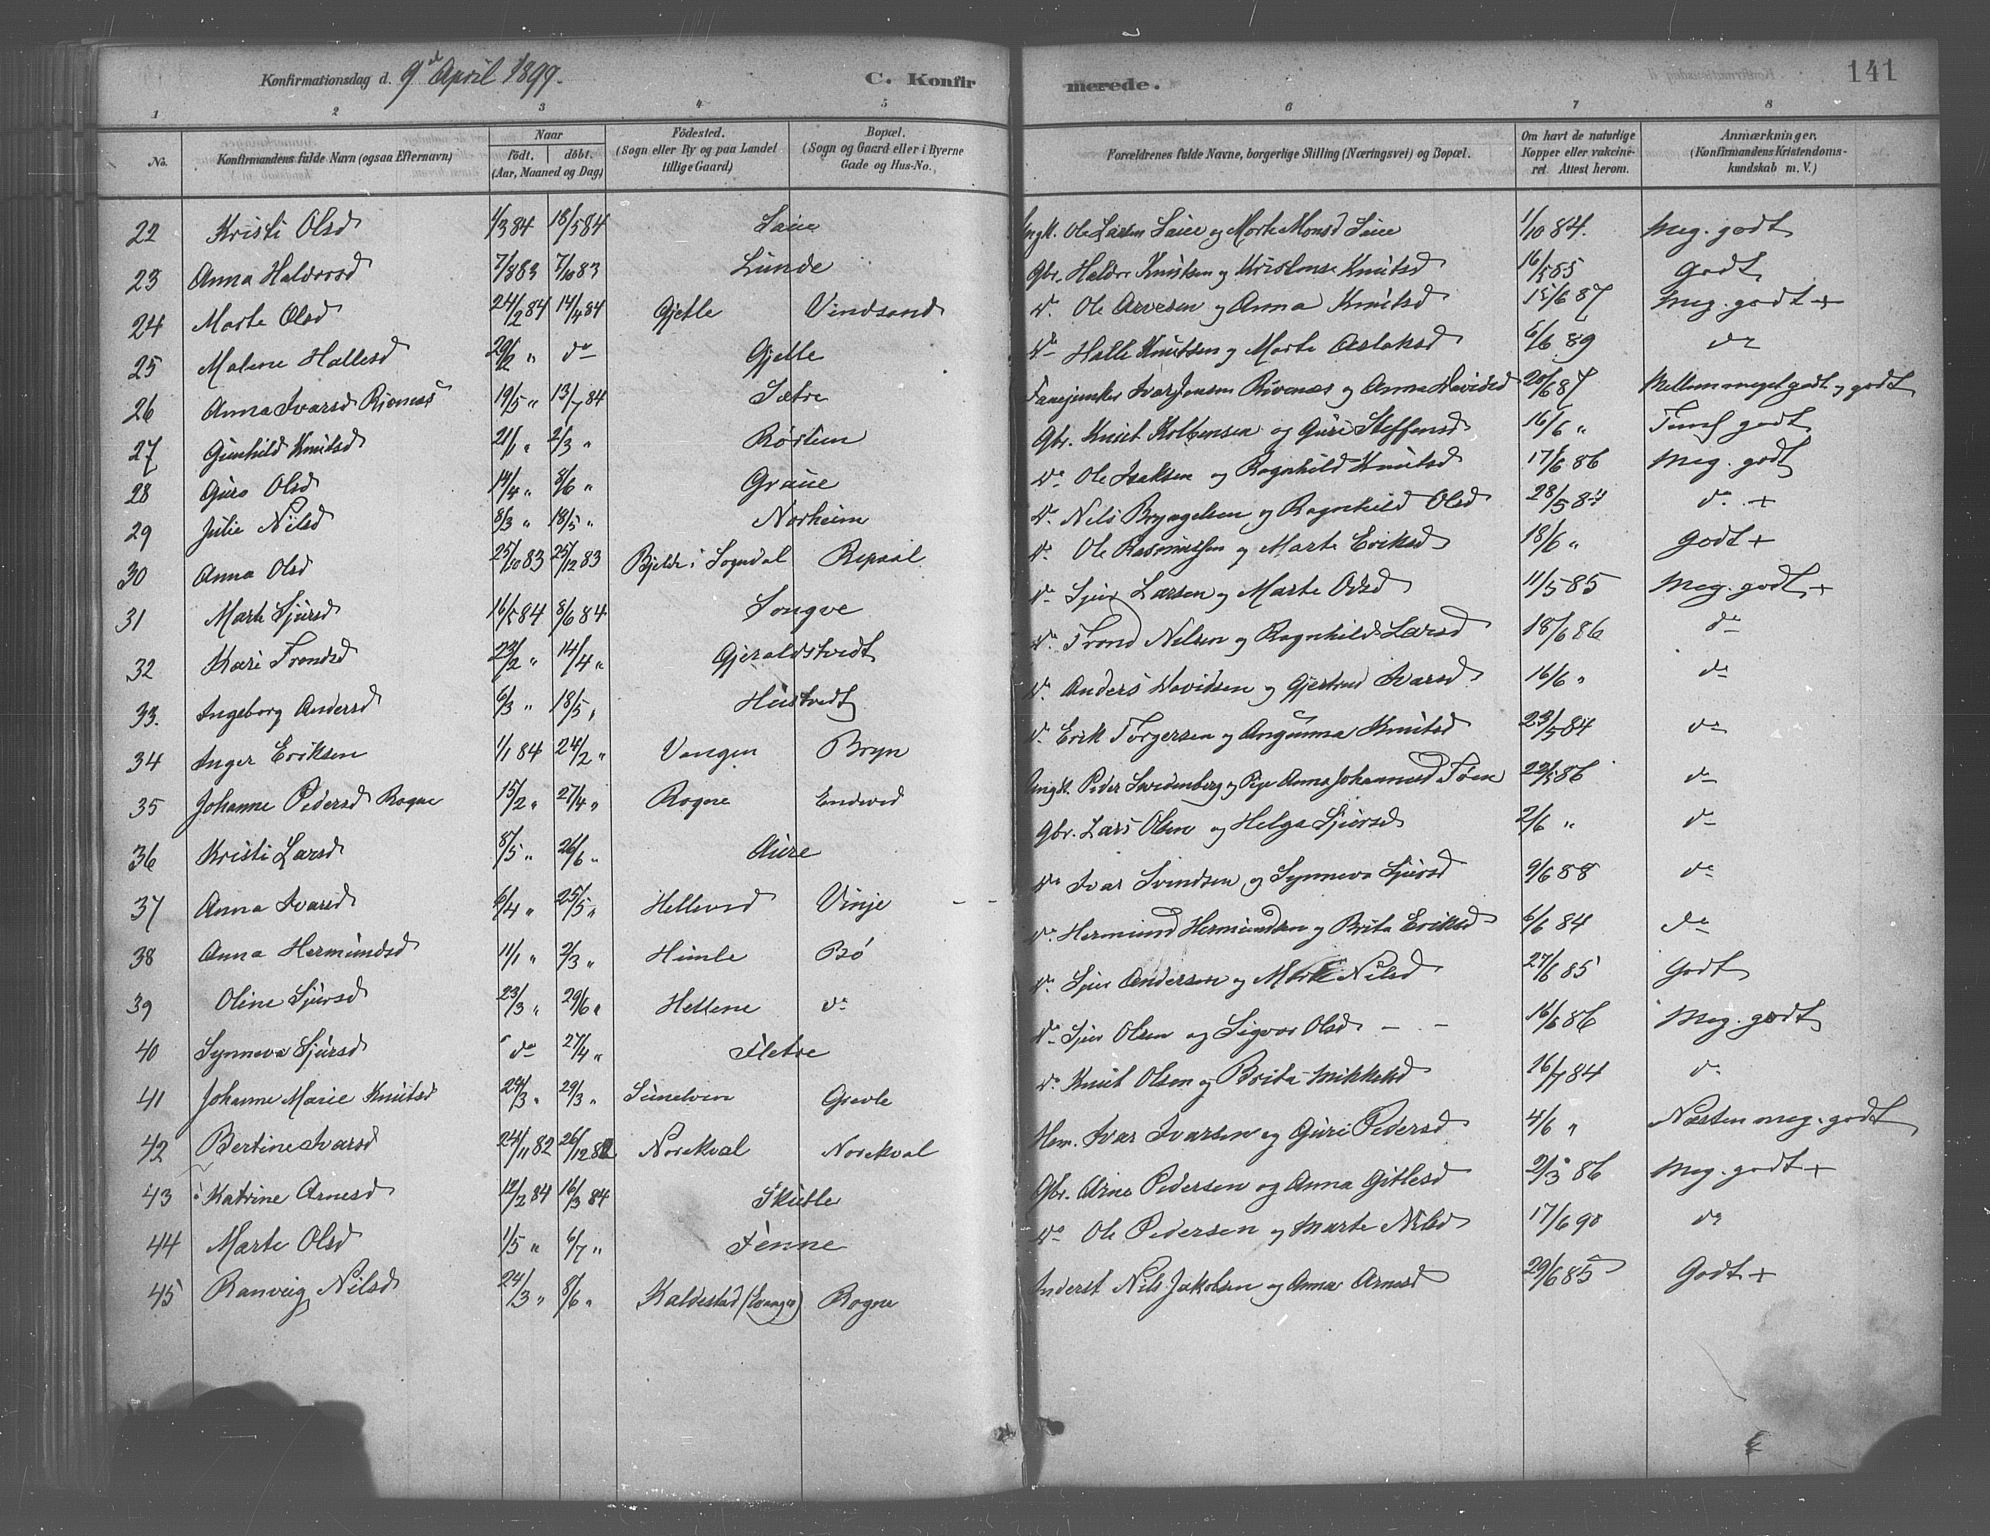 Konfirmationsdag d. 9de April 1899.
C. Konfir
merede.
141
1 2 3 4 5 6 7 8
No. Konfirmandens fulde Navn (ogsaa Efternavn) Naar födt. döbt. (Aar, Maaned og Dag) Födested. (Sogn eller By og paa Landet tillige Gaard) Bopæl. (Sogn og Gaard eller i Byerne Gade og Hus-No. Forældrenes fulde Navne, borgerlige Stilling (Næringsvei) og Bopæl. Om havt de naturlige Kopper eller vakcineret. Attest herom. Anmærkninger. (Konfirmandens Kristendomskundskab m. V.)
22 Kristi Olsd 1/3 84 18/5 84 Saue Ole Larsen Saue og Marte Monsd Saue 1/10 84. Meg. godt
23 Anna Haldorsd 7/8 83 7/10 83 Lunde Gbr. Haldor Knutsen og Knutsd 16/5 85 Godt
24 Marte Olsd 24/2 84 14/4 84 Gjelle Vindsand do Ole Arvesen og Anna Knutsd 15/6 87 Meg. godt +
25 Malene Hallesd 29/2 „ do Gjelle do Halle Knutsen og Marte Aslaksd 5/6 89 do
26 Anna Ivarsd Rivenæs 19/5 „ 13/7 84 Sætre Fanejunker Ivar Jonsen Rivenæs og Anna Davidsd 20/6 87 Mellem meget godt og godt
27 Gunhild Knutsd 21/1 „ 2/3 „ Rostem Gbr. Knut og Guri Steffensd 16/6 „ Temf godt
28 Guro Olsd 14/4 „ 8/6 „ Graue do Ole Isaksen og Ragnhild Knutsd 17/6 86 Meg. godt
29 Julie Nilsd 8/3 „ 18/5 „ Norheim do Nils Bryngelsen og Ragnhild Olsd 28/5 84 do +
30 Anna Olsd 25/10 83 25/12 83 Bjelde i Sogndal Repaal do Ole Rasmussen og Marte Eriksd 18/6 „ Godt +
31 Marte Sjursd 16/5 84 8/6 84 Songve do Sjur Larsen og Marte Odsd 11/5 85 Meg. godt +
32 Kari Trondsd 23/2 „ 14/4 „ Gjeraldstvedt do Trond Nilsen og Ragnhild Larsd 18/6 86 do
33. Ingeborg Andersd 6/3 „ 18/5 „ Hustvedt do Anders Davidsen og Gjertrud Ivarsd 16/6 „ do
34 Inger Eriksen 1/1 84 24/2 „ Vangen Bryn do Erik Torgersen og Angunna Knutsd 23/5 84 do
35 Johanne Pedersd Rogne 15/2 „ 27/4 „ Rogne Endeved Ungk. Peder Swedenberg og Pige Anna Johannesd 22/5 86 do
36 Kristi Larsd 8/5 „ 26/6 „ Aure Gbr. Lars Olsen og Helga Sjursd 2/6 „ do
37 Anna Ivarsd 6/4 „ 25/5 „ Helleved Vinje do Ivar Svendsen og Synneva Sjursd 9/6 88 do
38 Anna Hermundsd 11/1 „ 2/3 „ Himle Bö do Hermund Hermundsen og Brita Eriksd 6/6 84 do
39 Oline Sjursd 23/3 „ 29/6 „ Hellene do do Sjur Andersen og Marte Nilsd 27/6 85 Godt
40 Synneva Sjursd do 27/4 „ Fletre do Sjur Olsen og Sigvor Olsd 16/6 86 Meg. godt
41 Johanne Marie Knutsd 24/3 „ 29/3 „ Sunelven Grevle do Knut Olsen og Brita Mikkelsd 16/7 84 do
42 Bertine Ivarsd 24/11 82 26/12 82 Norekval Norekval Hem. Ivar Ivarsen og Guri Pedersd 4/6 „ Næsten meg. godt
43 Katrine Arnesd 12/2 84 16/3 84 Skutle Gbr. Arne Pedersen og Anna Gitlesd 2/3 86 Meg. godt +
44 Marte Olsd 1/5 „ 6/7 „ Fenne do Ole Pedersen og Marte Nilsd 17/6 90 do
45 Ranveig Nilsd 24/3 „ 8/6 „ Kaldestad (Evanger) Rogne Inderst Nils Jakobsen og Anna Arnesd 29/6 85 Godt +